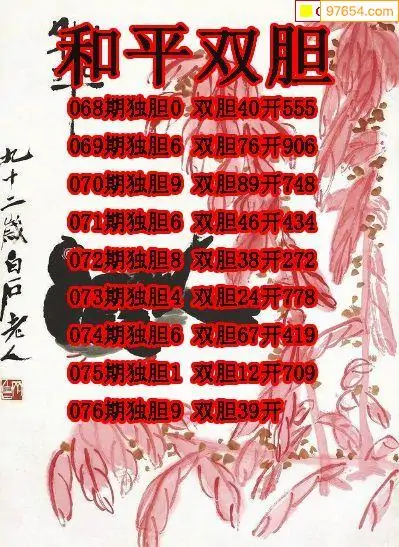 97654.com
和平双胆
068期独胆0 双胆40开555
069期独胆6 双胆76开906
070期独胆9 双胆89开748
071期独胆6 双胆46开434
072期独胆8 双胆38开272
073期独胆4 双胆24开778
074期独胆6 双胆67开419
075期独胆1 双胆12开709
076期独胆9 双胆39开
九十二岁白石老人